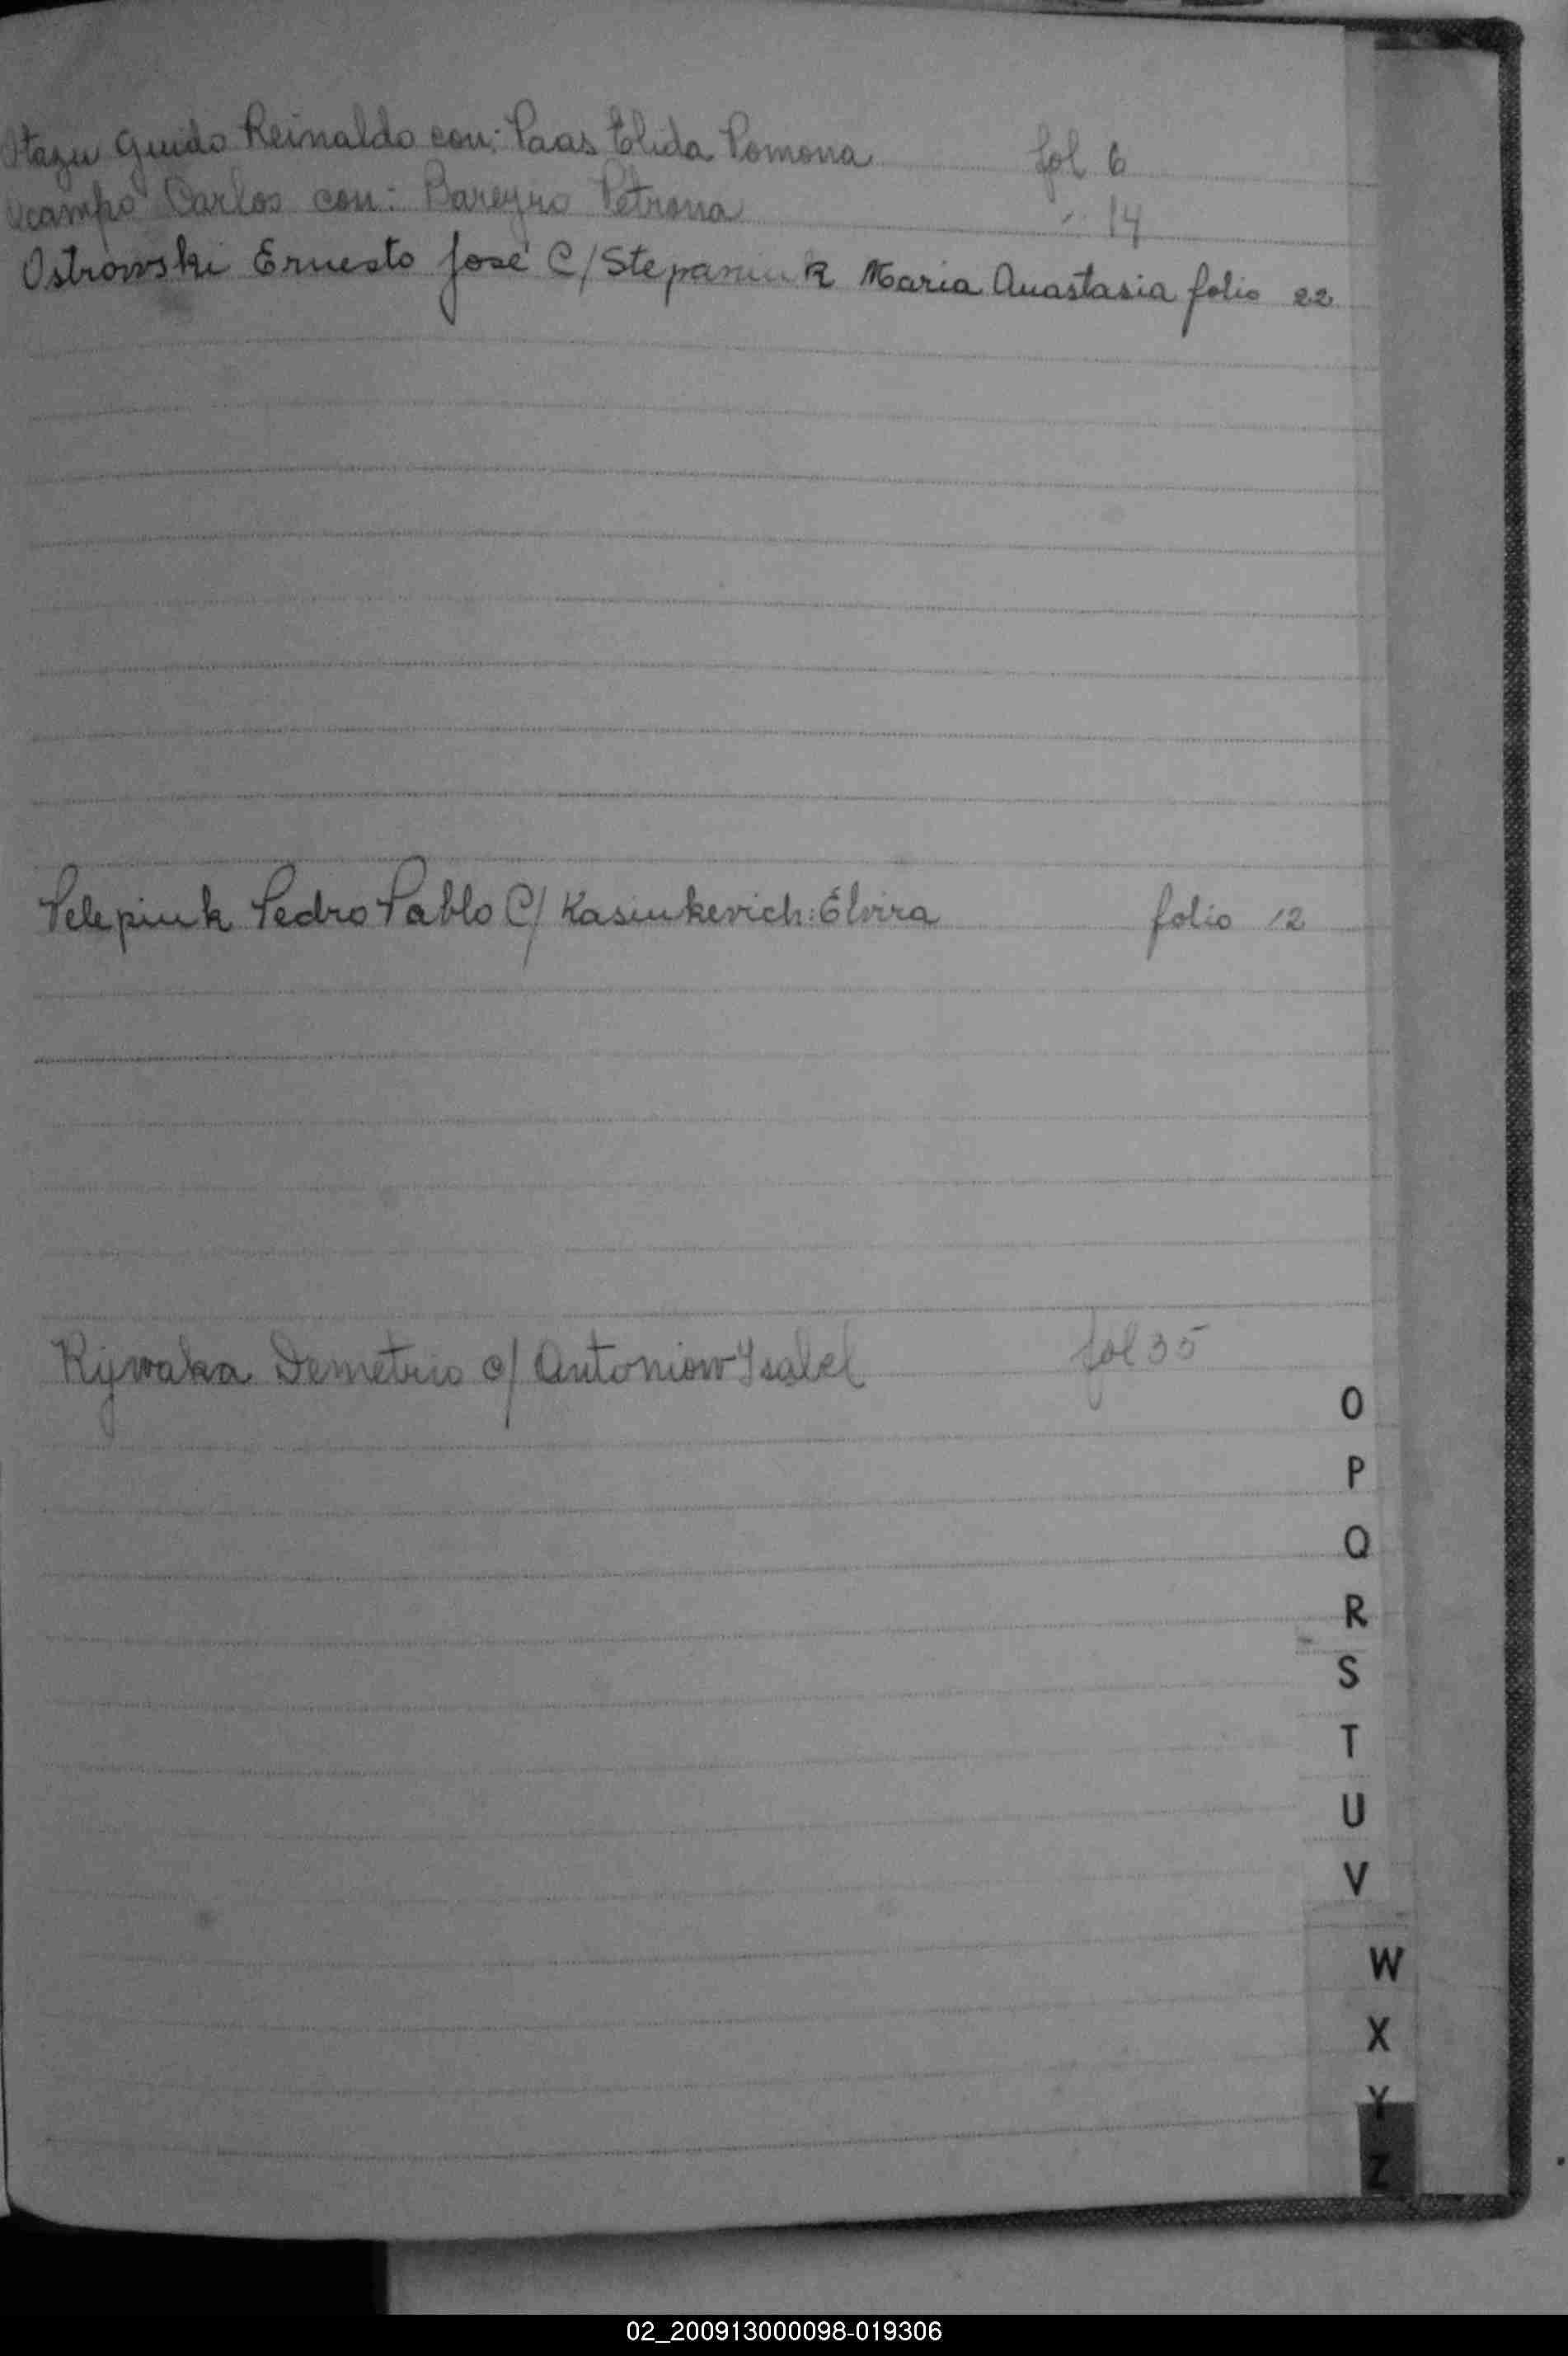 Otazu Guido Reinaldo con: Paas Elida Pomona fol 6
Ocampo Carlos con: Bareyro Petrona " 14
Ostrowski Ernesto José C/ Stepaniuk Maria Anastasia folio 22
Pelepiuk Pedro Pablo C/ Kasiukevich: Elvira folio 12
Rywaka Demetrio c/ Antoniow Ysabel fol 35
O
P
Q
R
S
T
U
V
W
X
Y
Z
02_200913000098-019306